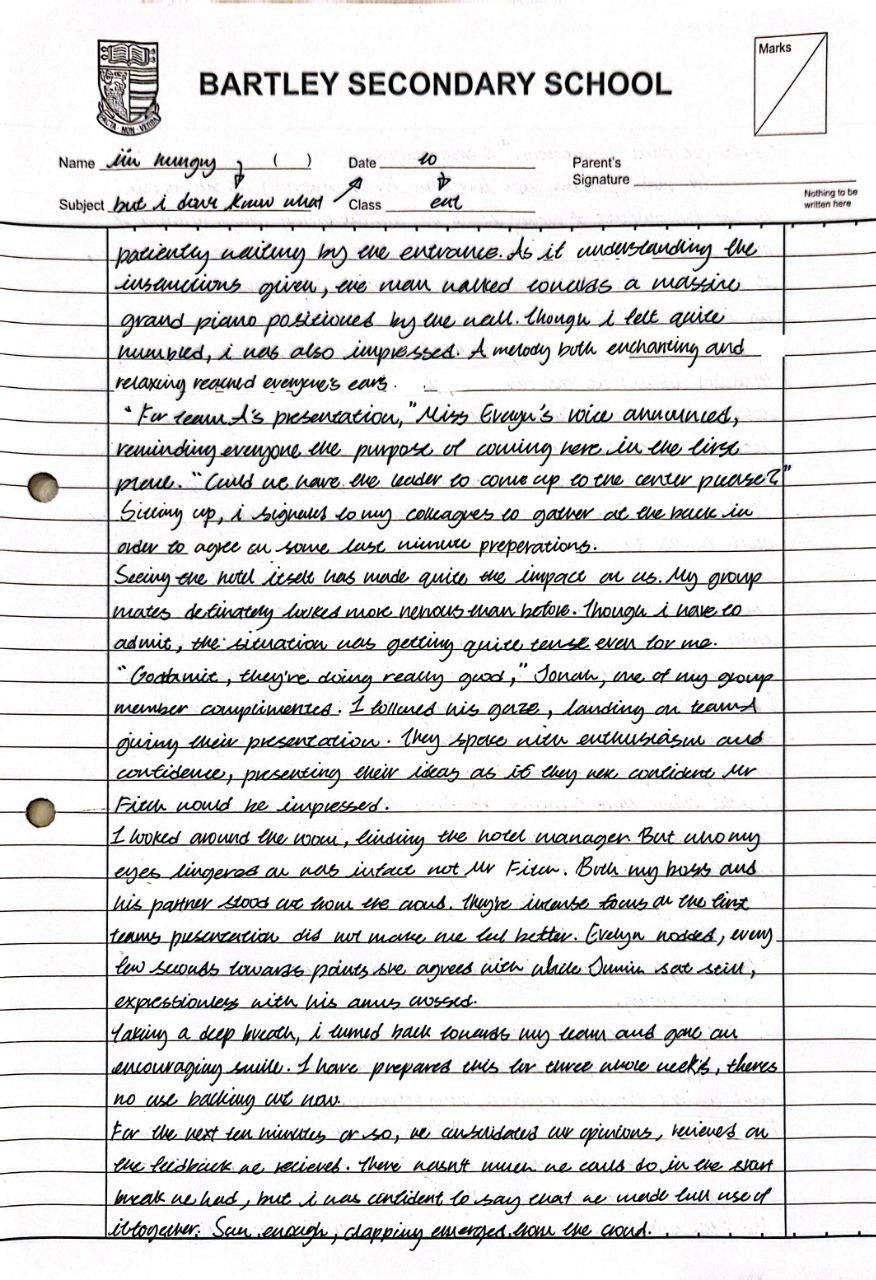 BARTLEY SECONDARY SCHOOL
Marks
ALTA NON VERBA
Name im hungry , ( ) Date to Parent's
Signature
Subject but i dont know what Class eat Nothing to be
written here
patiently waiting by the entrance. As if understanding the
instructions given, the man walked towards a massive
grand piano positioned by the wall. Though i felt quite
humbled, i was also impressed. A melody both enchanting and
relaxing reached everyone's ears.
"For team A's presentation," Miss Evelyn's voice announced,
reminding everyone the purpose of coming here in the first
place. "Could we have the leader to come up to the center please?"
Sitting up, i signaled to my colleagues to gather at the back in
order to agree on some last minute preperations.
Seeing the hotel itself has made quite the impact on us. My group
mates definately looked more nervous than before. Though i have to
admit, the situation was getting quite tense even for me.
"Goddamit, they're doing really good," Jonah, one of my group
member complimented. I followed his gaze, landing on team A
giving their presentation. They spoke with enthusiasm and
confidence, presenting their ideas as if they were confident Mr
Fitch would be impressed.
I looked around the room, finding the hotel manager. But who my
eyes lingered on was infact not Mr Fitch. Both my boss and
his partner stood out from the croud. They're intense focus on the first
teams presentation did not make me feel better. Evelyn nodded, every
few seconds towards points she agreed with while Jumin sat still,
expressionless with his arms crossed.
Taking a deep breath, i turned back towards my team and gave an
encouraging smile. I have prepared this for three whole weeks, theres
no use backing out now.
For the next ten minutes or so, we consolidated our opinions, relieved on
the feedback we recieved. There wasn't much we could do in the short
break we had, but i was confident to say that we made full use of
it together. Soon enough, clapping emerged from the croud.